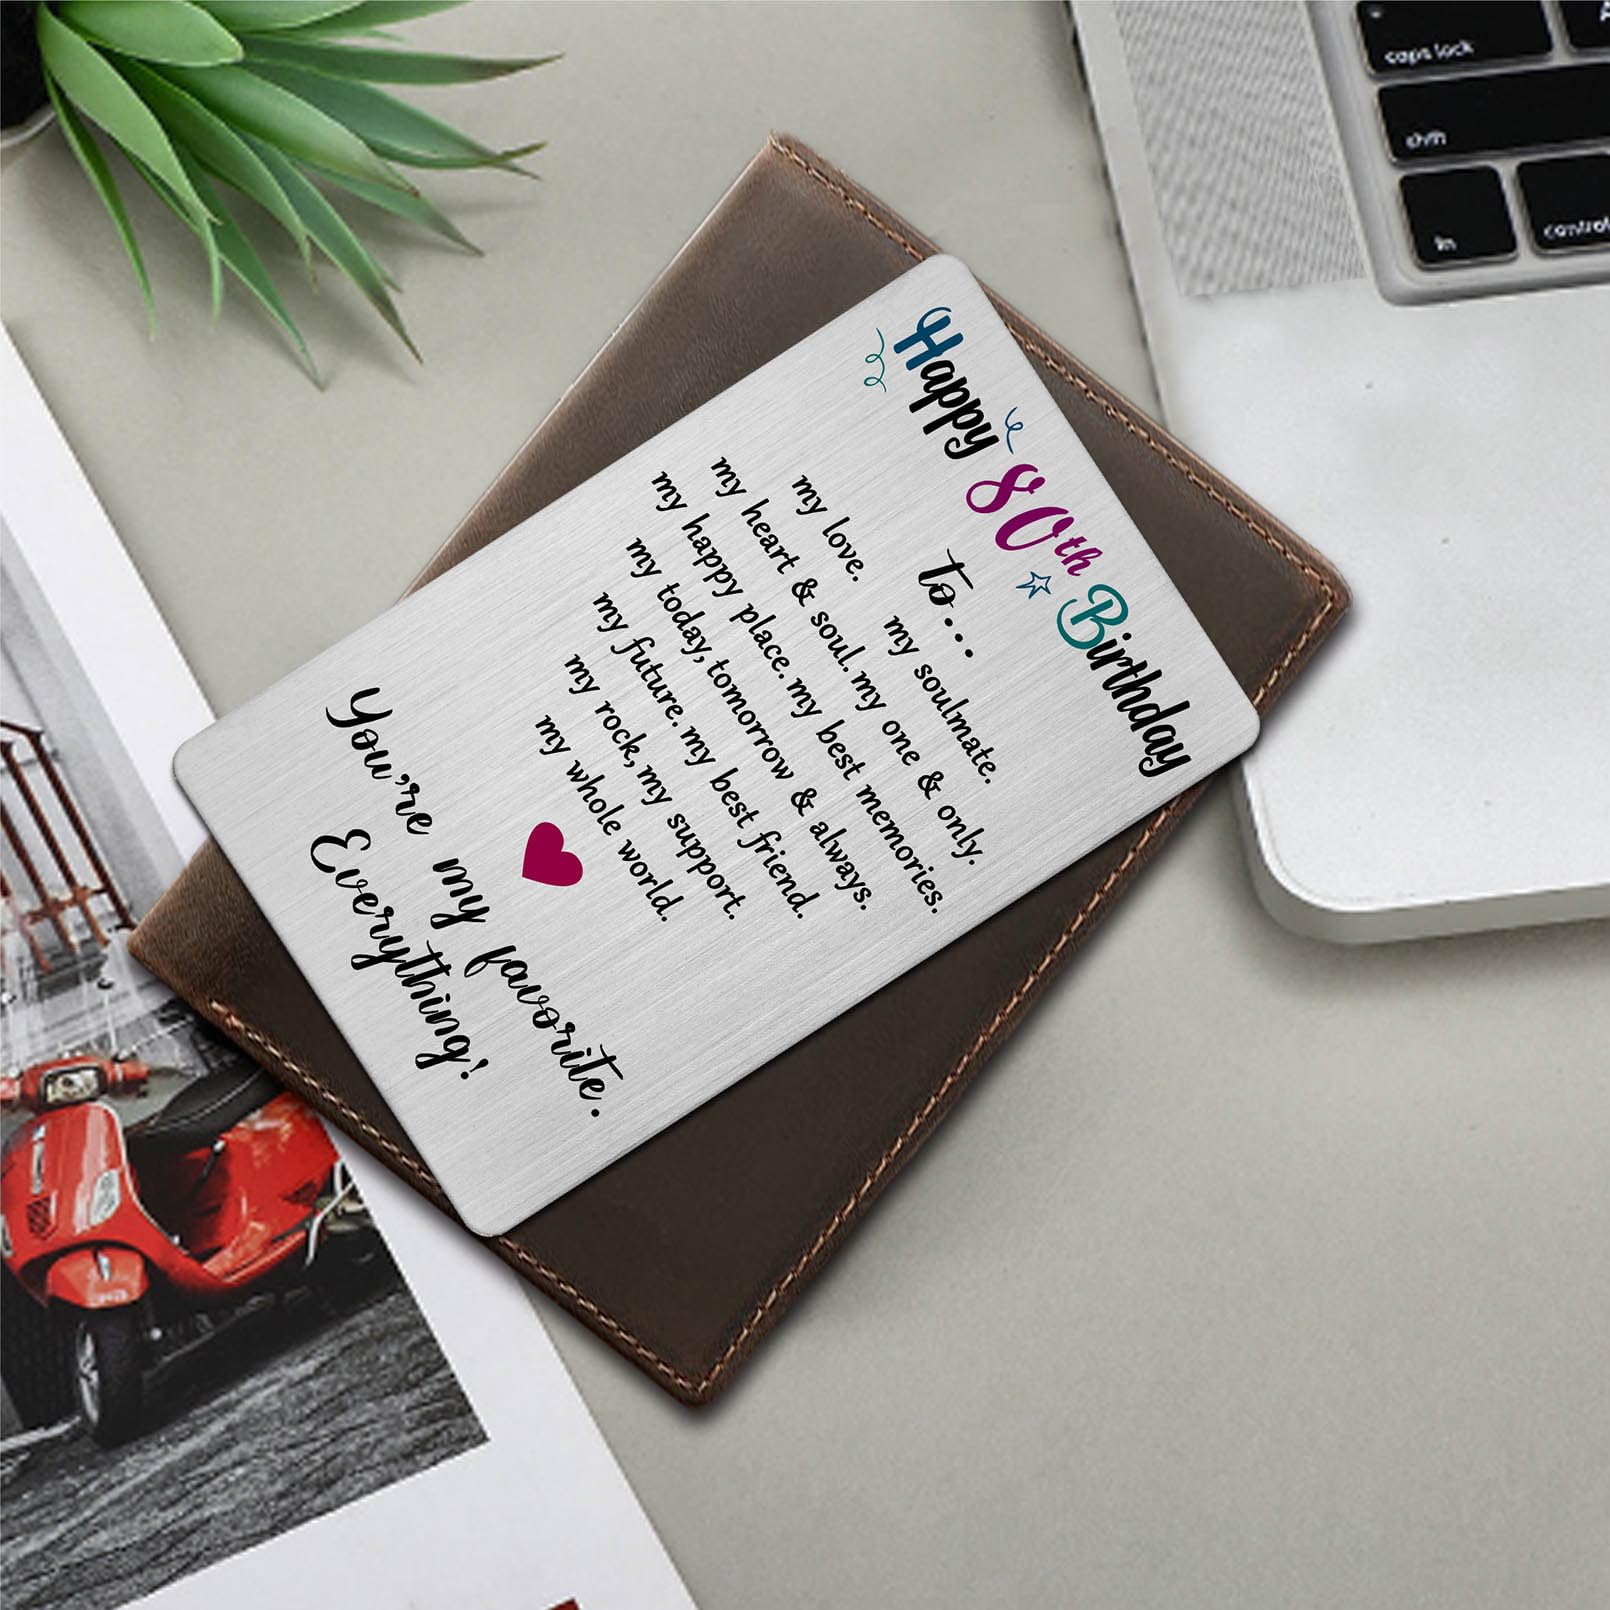 Happy 80th Birthday
to...
my love. my soulmate.
my heart & soul. my one & only.
my happy place. my best memories.
my today, tomorrow & always.
my future. my best friend.
my rock, my support.
my whole world.
You're my favorite.
Everything!
caps lock
A
shift
fn
control